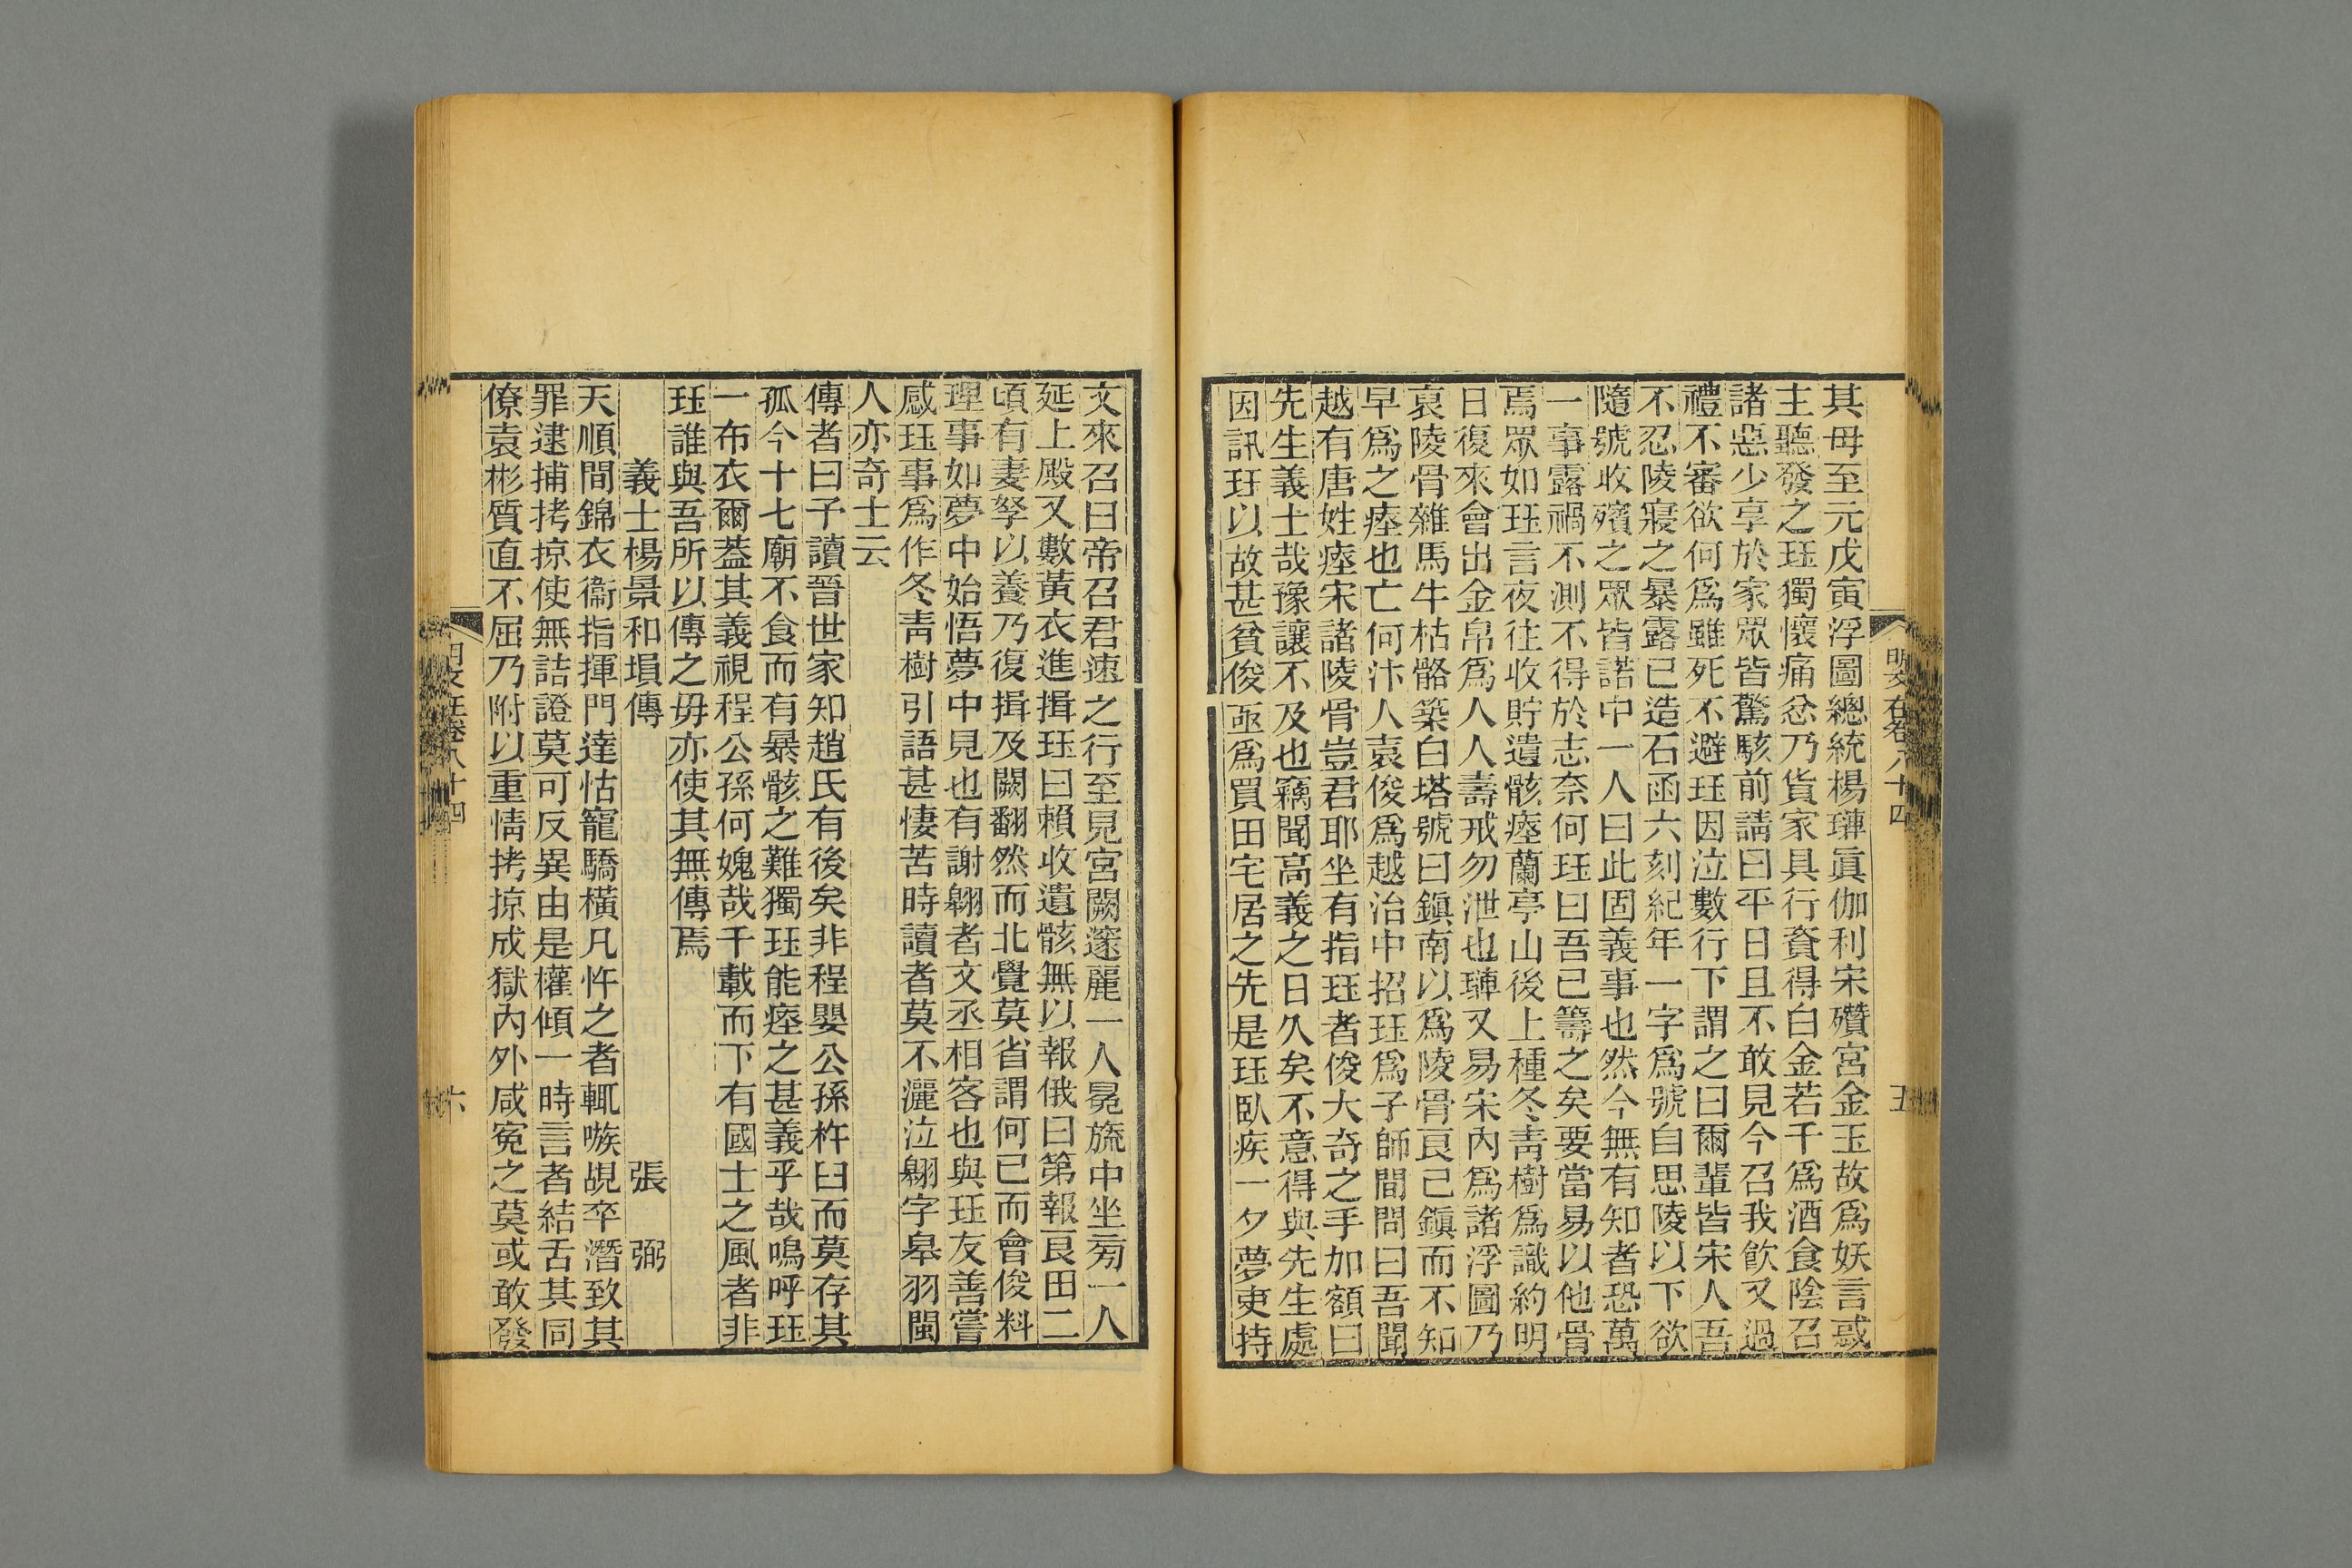 明文在卷八十四
五
其母至元戊寅浮圖總統楊璉眞伽利宋殯宮金玉故爲妖言惑
主聽發之珏獨懷痛忿乃貨家具行資得白金若千爲酒食陰召
諸惡少享於家眾皆驚駭前請曰平日且不敢見今召我飮又過
禮不審欲何爲雖死不避珏因泣數行下謂之曰爾輩皆宋人吾
不忍陵寢之暴露已造石函六刻紀年一字爲號自思陵以下欲
隨號收殯之眾皆諾中一人曰此固義事也然今無有知者恐萬
一事露禍不測不得於志奈何珏曰吾已籌之矣要當易以他骨
焉眾如珏言夜往收貯遺骸瘞蘭亭山後上種冬靑樹爲識約明
日復來會出金帛爲人人壽戒勿泄也璉又易宋內爲諸浮圖乃
裒陵骨雜馬牛枯骼築白塔號曰鎭南以爲陵骨良已鎭而不知
早爲之瘞也亡何汴人袁俊爲越治中招珏爲子師間問曰吾聞
越有唐姓瘞宋諸陵骨豈君耶坐有指珏者俊大奇之手加額曰
先生義士哉豫讓不及也竊聞高義之日久矣不意得與先生處
因訊珏以故甚貧俊亟爲買田宅居之先是珏臥疾一夕夢吏持
文來召曰帝召君速之行至見宮闕邃麗一人冕旒中坐旁一人
延上殿又數黃衣進揖珏曰賴收遺骸無以報俄曰第報良田二
頃有妻孥以養乃復揖及闕翻然而北覺莫省謂何已而會俊料
理事如夢中始悟夢中見也有謝翱者文丞相客也與珏友善嘗
感珏事爲作冬靑樹引語甚悽苦時讀者莫不灑泣翱字皋羽閩
人亦奇士云
傳者曰子讀晉世家知趙氏有後矣非程嬰公孫杵臼而莫存其
孤今十七廟不食而有暴骸之難獨珏能瘞之甚義乎哉嗚呼珏
一布衣爾葢其義視程公孫何媿哉千載而下有國士之風者非
珏誰與吾所以傳之毋亦使其無傳焉
義士楊景和塤傳 張 弼
天順間錦衣衞指揮門達怙寵驕橫凡忤之者輒嗾覘卒潛致其
罪逮捕拷掠使無詰證莫可反異由是權傾一時言者結舌其同
僚袁彬質直不屈乃附以重情拷掠成獄內外咸寃之莫或敢發
卷八十四
六